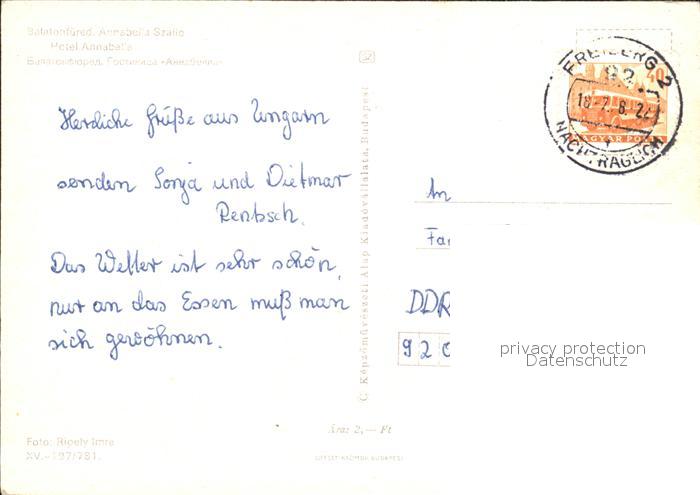 Balatonfüred. Annabella Szálló
Hotel Annabella
Балатонфюред. Гостиница «Аннабелла»
Herzliche Grüße aus Ungarn
senden Sonja und Dietmar
Rentsch.
Das Wetter ist sehr schön,
nur an das Essen muß man
sich gewöhnen.
Foto: Ripely Imre
XV.-197/781.
© Képzőművészeti Alap Kiadóvállalata, Budapest
Ára: 2,— Ft
OFFSET KAZMÉR BUDAPEST
FREIBERG 2
92
18.-7.8.-22
NACHTRÄGLICH
40
MAGYAR POSTA
An
Fa
DDR
920
privacy protection
Datenschutz